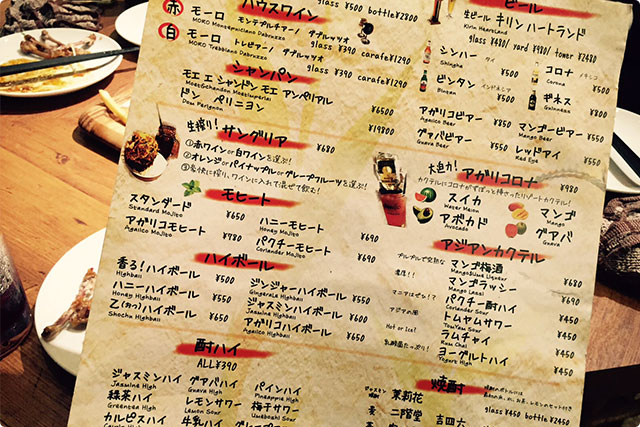 ハウスワイン glass ¥500 bottle¥2800
赤 モーロ モンテプルチアーノ ダブルッツォ
MORO Montepulciano Dabruzzo
白 モーロ トレビアーノ ダブルッツォ
MORO Trebbiano Dabruzzo
glass ¥390 carafe¥1290
glass ¥390 carafe¥1290
シャンパン
モエ エ シャンドン モエ アンペリアル ¥6500
ドン ペリニヨン ¥19800
Dom Perignon
生搾り! サングリア ¥680
①赤ワインor白ワインを選ぶ!
②オレンジorパイナップルorグレープフルーツを選ぶ!
③豪快に搾り、ワインに入れて混ぜて飲む!
モヒート
スタンダード ¥650
Standard Mojito
アガリコモヒート ¥780
Agalico Mojito
ハニーモヒート ¥690
Honey Mojito
パクチーモヒート ¥690
Coriander Mojito
ハイボール
香る!ハイボール ¥500
Highball
ハニーハイボール ¥550
Honey Highball
乙(おつ)ハイボール ¥650
Shochu Highball
ジンジャーハイボール ¥550
Gingerale Highball
ジャスミンハイボール ¥550
Jasmine Highball
アガリコハイボール ¥650
Agalico Highball
酎ハイ
ALL¥390
ジャスミンハイ
Jasmine High
緑茶ハイ
Greentea High
カルピスハイ
グアバハイ
Guava High
レモンサワー
Lemon Sour
牛乳ハイ
パインハイ
Pineapple High
梅干サワー
Umeboshi Sour
ビール
生ビール キリン ハートランド
Kirin HeartLand
glass ¥480/ yard ¥980/ tower ¥2480
シンハー タイ ¥500
Shingha
ビンタン インドネシア ¥500
Bintan
アガリコビアー ¥550
Agalico Beer
グァバビアー ¥550
Guava Beer
コロナ メキシコ ¥600
Corona
ギネス ¥800
Guinness
マンゴービアー ¥550
Mango Beer
レッドアイ ¥550
Red Eye
大迫力! アガリコロナ ¥980
カクテルにコロナがずぼっと挿さったリゾートカクテル!
スイカ
Water Melon
アボカド
Avocado
マンゴ
Mango
グアバ
Guava
アジアンカクテル
マンゴ梅酒 ¥680
Mango&Ume Liqueur
マンゴラッシー ¥690
Mango Lassi
パクチー酎ハイ ¥450
Coriander Sour
トムヤムサワー ¥450
TomYam Sour
ラムチャイ ¥450
Rum Chai
ヨーグルトハイ ¥450
Yogurt High
マニアはぜひ!?
アジアの風
Hot or Ice!
乳酸菌たっぷり!
焼酎
茉莉花
二階堂
吉四六
glass ¥450 bottle ¥2450